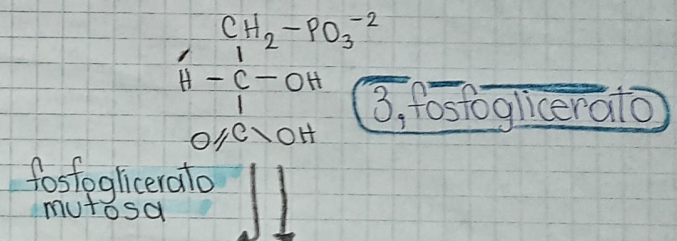 CH₂-PO₃⁻²
H - C - OH
3, fosfoglicerato
O//C\OH
fosfoglicerato
mutosa